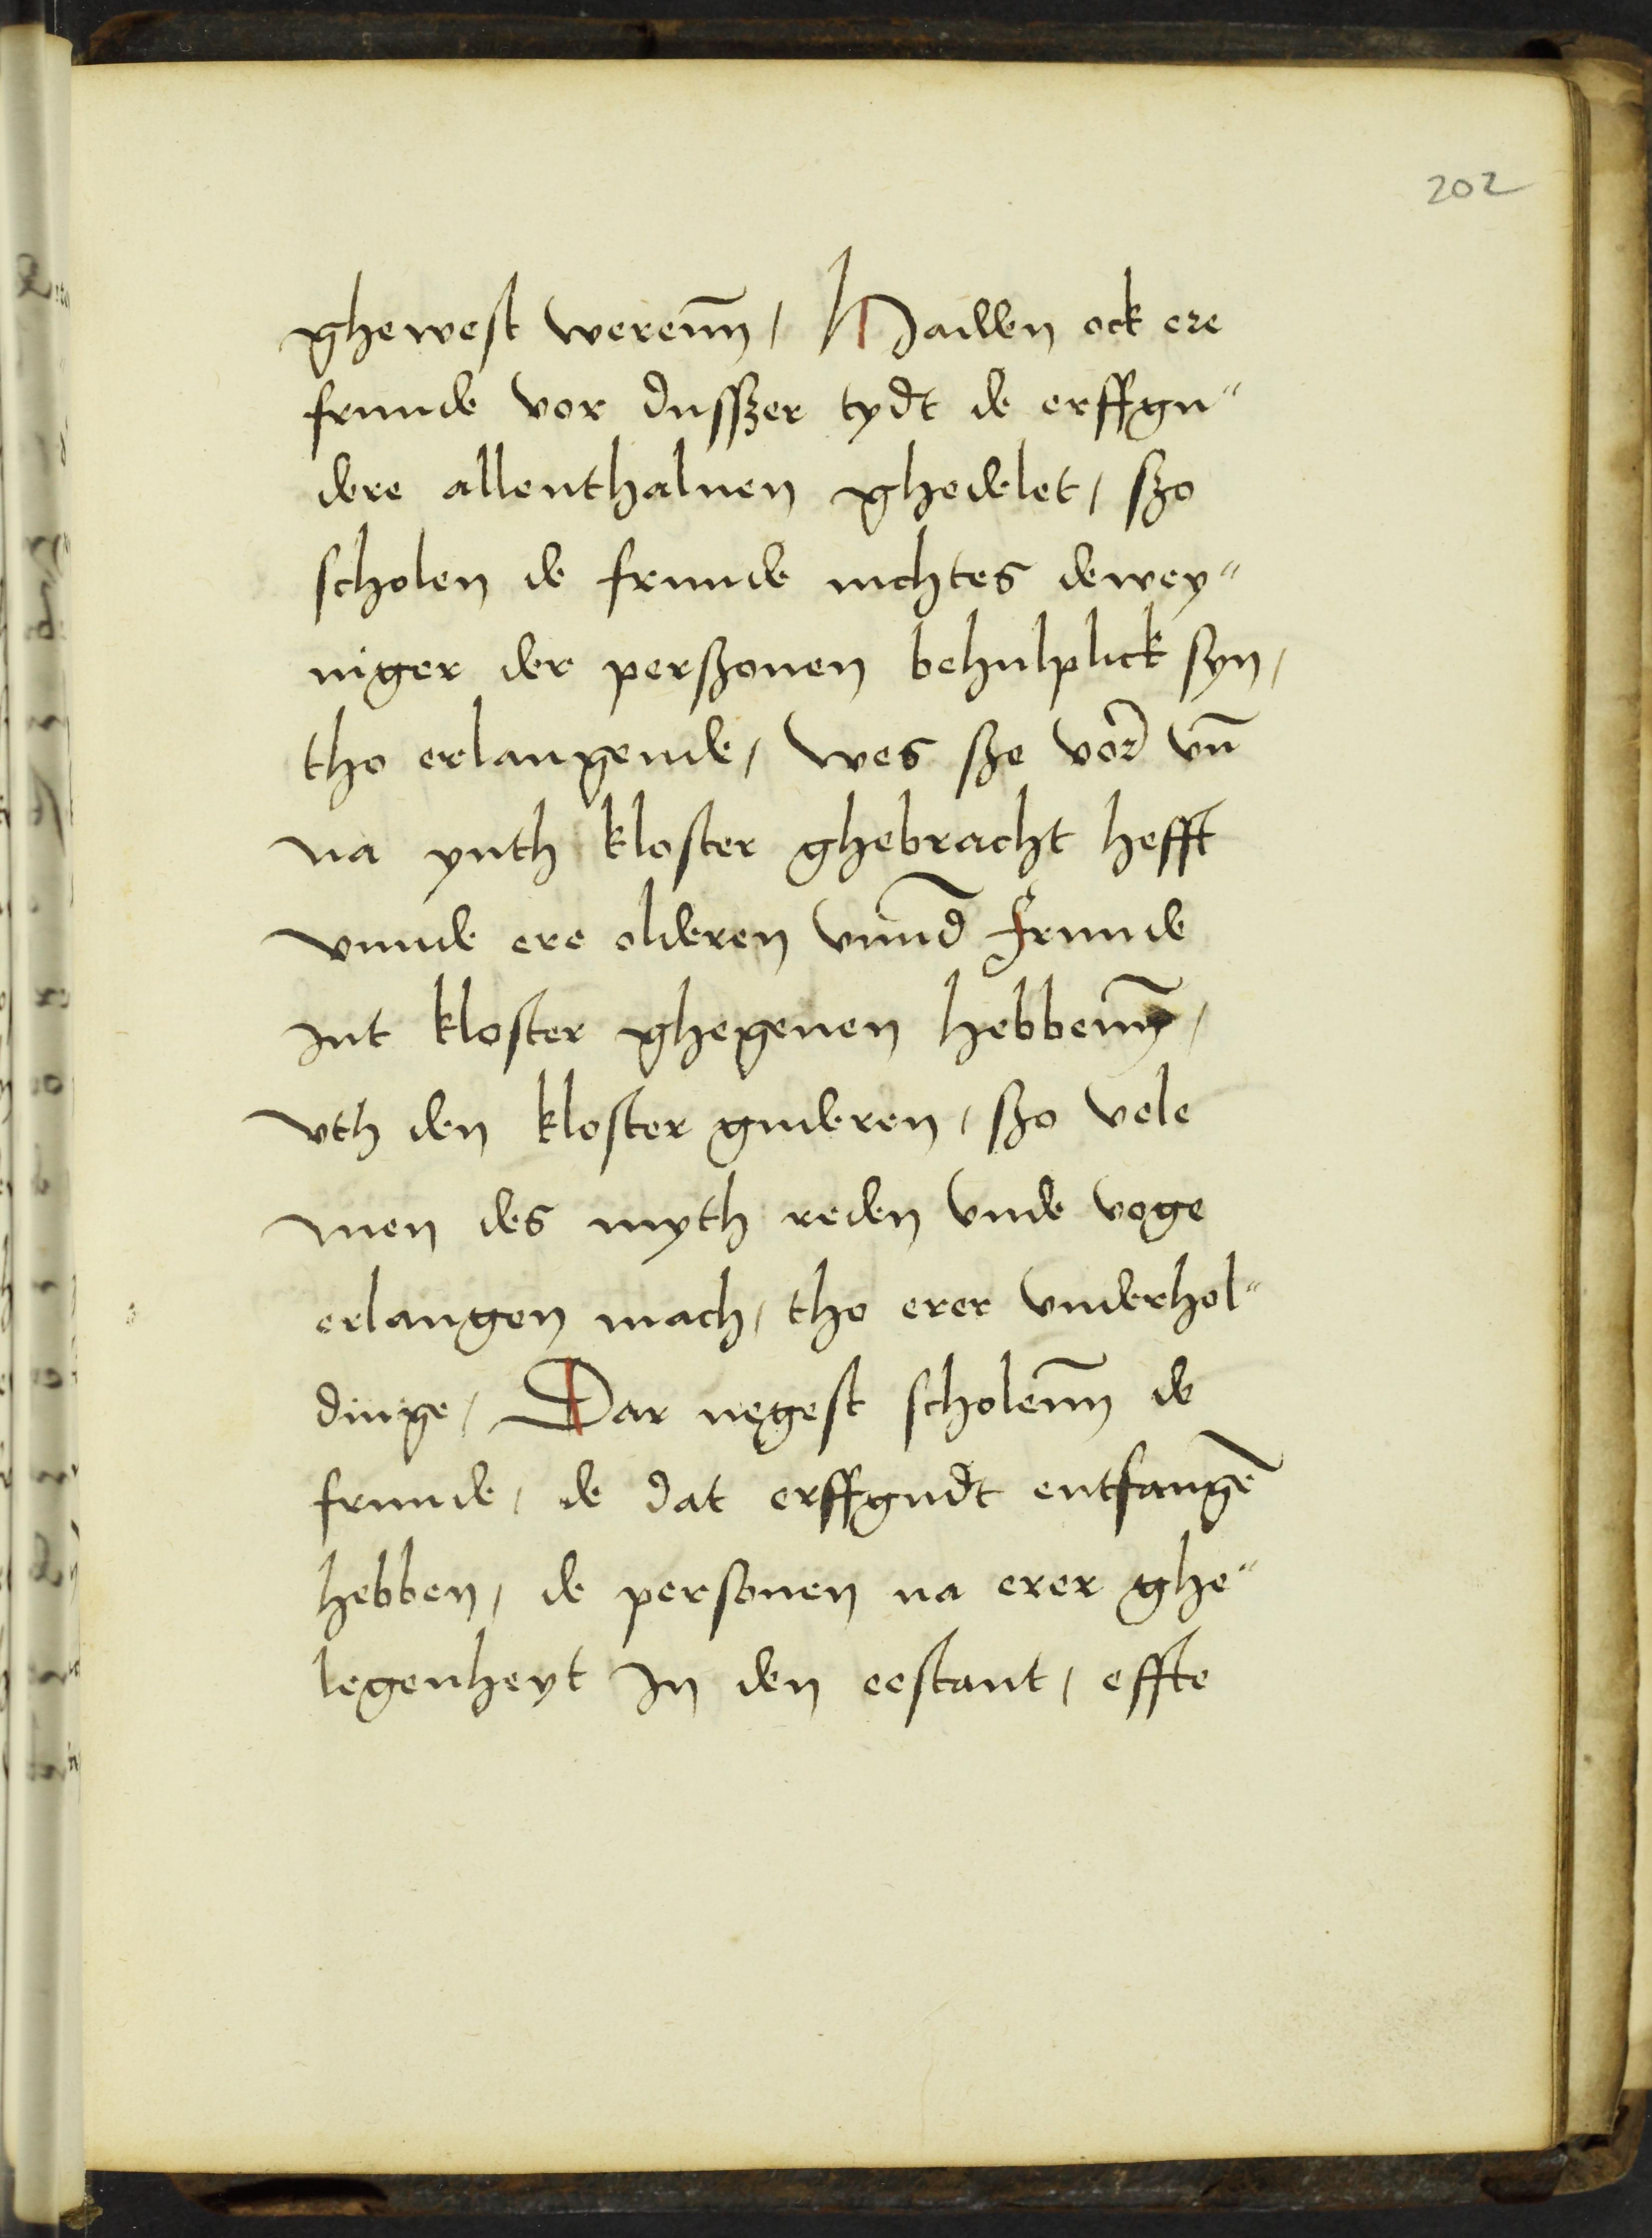 202
ghewest werenn̄, Hadden ock ere
frunde vor dusszer tydt de erffgu⸗
dere allenthaluen ghedelet, szo
scholen de frunde nichtes dewey⸗
niger der perszonen behulplick syn,
tho erlangende, wes sze vor vn̄
na ynth kloster ghebracht hefft
vnnde ere olderen vnnd frunde
int kloster ghegeuen hebbenn̄,
vth den kloster guderen, szo vele
men des myth reden vnde voge
erlangen mach, tho erer vnderhol⸗
dinge, Dar negest scholenn̄ de
frunde, de dat erffgudt entfangē
hebben, de personen na erer ghe⸗
legenheyt in den eestant, effte